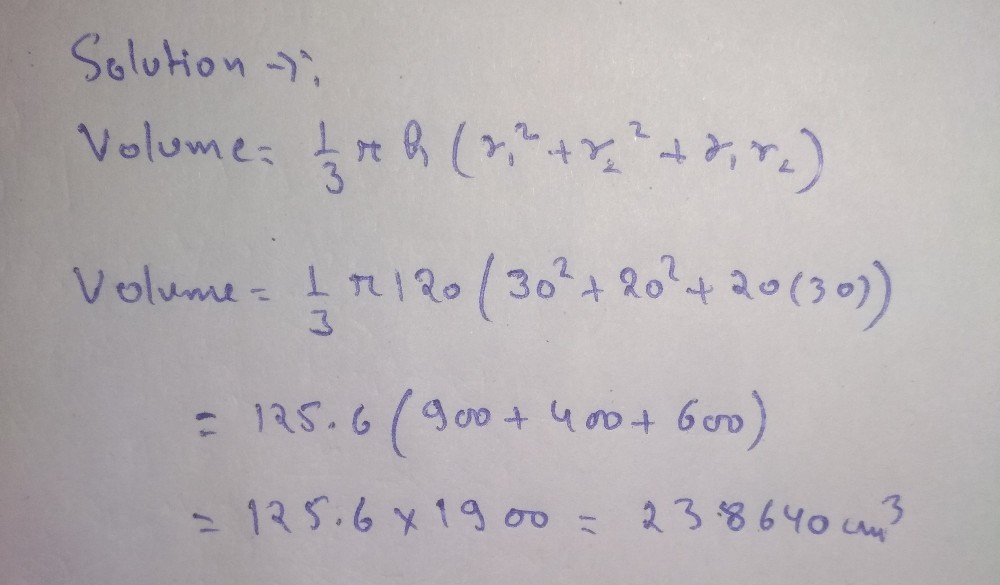 Solution →:
Volume = 1/3 π h (r₁² + r₂² + r₁ r₂)
Volume = 1/3 π 120 (30² + 20² + 20(30))
= 125.6 (900 + 400 + 600)
= 125.6 × 1900 = 238640 cm³